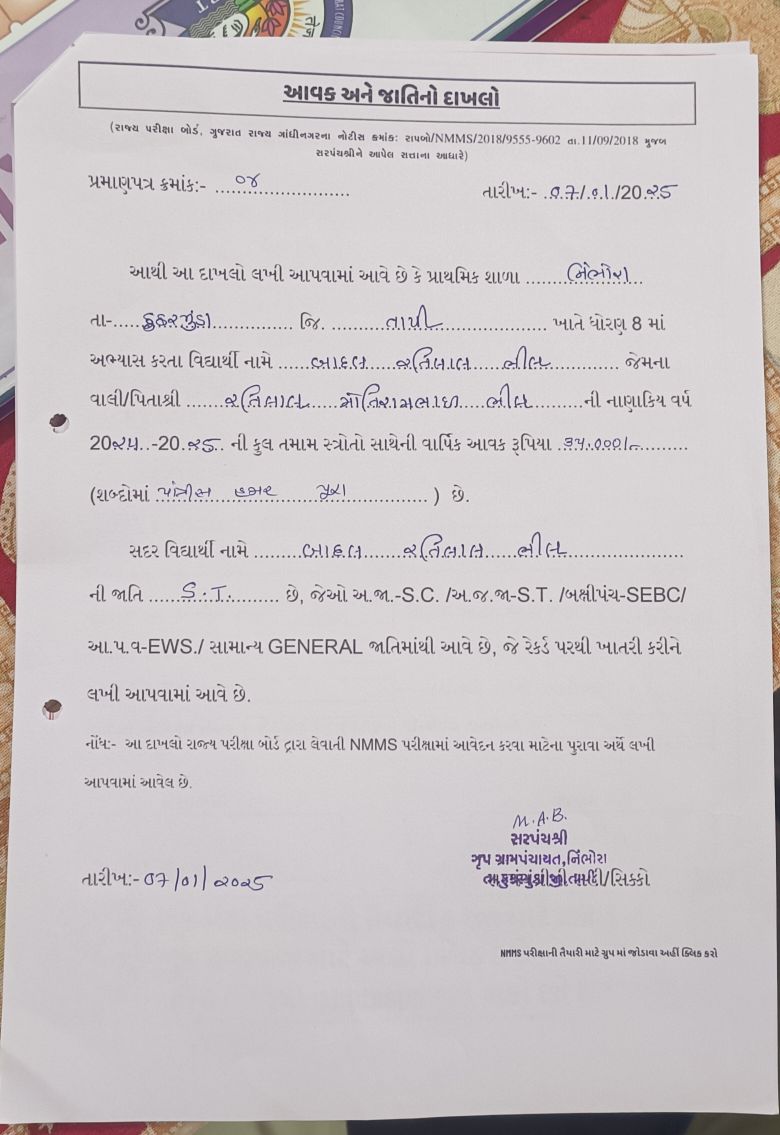 આવક અને જાતિનો દાખલો
(રાજ્ય પરીક્ષા બોર્ડ, ગુજરાત રાજ્ય ગાંધીનગરના નોટીસ ક્રમાંક: રાપબો/NMMS/2018/9555-9602 તા.11/09/2018 મુજબ
સરપંચશ્રીને આપેલ સત્તાના આધારે)
પ્રમાણપત્ર ક્રમાંક:- ૦૪ તારીખ:- ૦૭/૦૧/20૨૫
આથી આ દાખલો લખી આપવામાં આવે છે કે પ્રાથમિક શાળા નિંભોરા
તા- કુકરમુંડા જિ. તાપી ખાતે ધોરણ 8 માં
અભ્યાસ કરતા વિદ્યાર્થી નામે બાદલ રતિલાલ ભીલ જેમના
વાલી/પિતાશ્રી રતિલાલ મોતિરામભાઇ ભીલ ની નાણાકિય વર્ષ
20૨૪-20૨૫ ની કુલ તમામ સ્ત્રોતો સાથેની વાર્ષિક આવક રૂપિયા ૩૫,૦૦૦/-
(શબ્દોમાં પાંત્રીસ હજાર પુરા ) છે.
સદર વિદ્યાર્થી નામે બાદલ રતિલાલ ભીલ
ની જાતિ S.T. છે, જેઓ અ.જા.-S.C. /અ.જ.જા-S.T. /બક્ષીપંચ-SEBC/
આ.પ.વ-EWS./ સામાન્ય GENERAL જાતિમાંથી આવે છે, જે રેકર્ડ પરથી ખાતરી કરીને
લખી આપવામાં આવે છે.
નોંધ:- આ દાખલો રાજ્ય પરીક્ષા બોર્ડ દ્વારા લેવાની NMMS પરીક્ષામાં આવેદન કરવા માટેના પુરાવા અર્થે લખી
આપવામાં આવેલ છે.
M.A.B.
સરપંચશ્રી
ગૃપ ગ્રામપંચાયત,નિંભોરા
તારીખ:- 07/01/૨૦૨૫ /સિક્કો
NMMS પરીક્ષાની તૈયારી માટે ગ્રુપ માં જોડાવા અહીં ક્લિક કરો